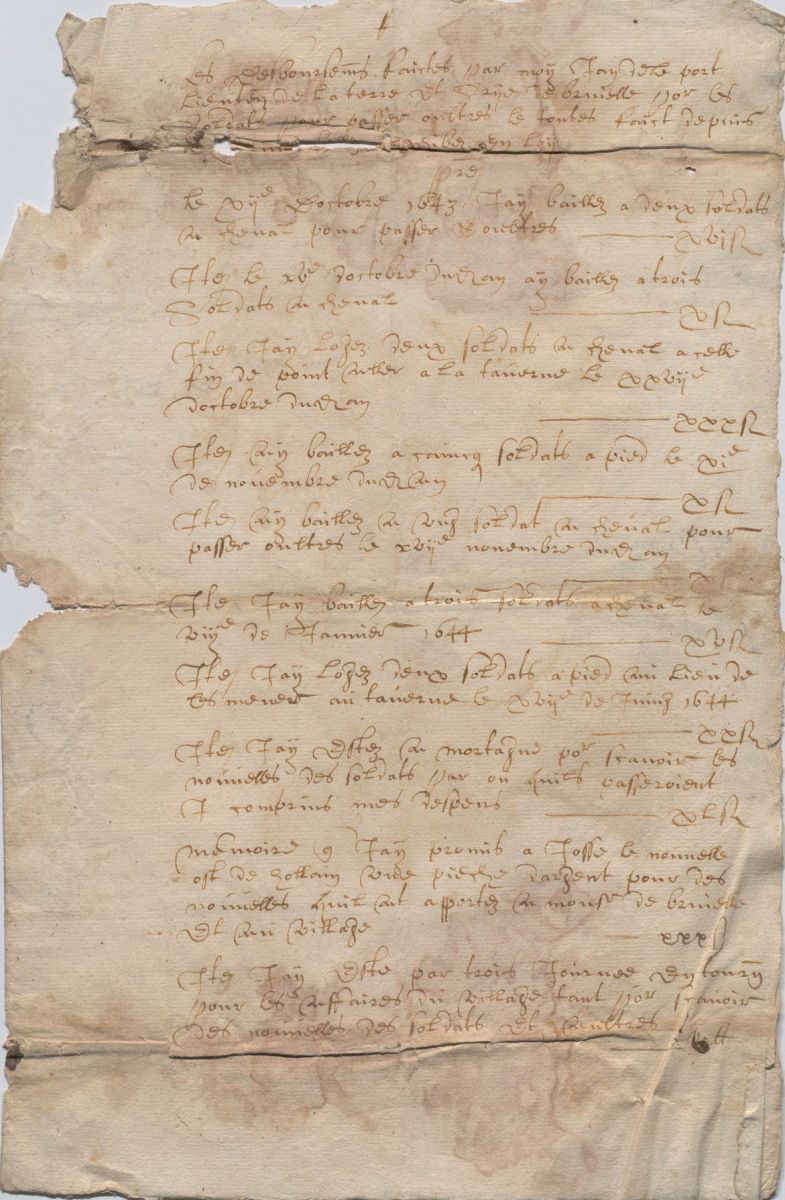 Les desboursems faictes par moy Jan dele port
lieuten de la terre et Srye de bruielle por les
soldats pour passer oultres le toutes faict depuis
pre
le xvije doctobre 1643 Jay baillez a deux soldats
a cheval pour passer oultres xvjs
Ite le xve doctobre dud an ay baillez a trois
Soldats a cheval xs
Ite Jay logez deux soldats a cheval a celle
fin de point aller a la taverne le xxvije
doctobre dud an
xxxs
Ite ay baillez a cauincq soldats a pied le xie
de novembre dud an
xs
Ite ay baillez a ung soldat a cheval pour
passer oultres le xvije novembre dud an
Ite Jay baillez a trois soldats a cheval le
vije de Janvier 1644 xvs
Ite Jay logez deux soldats a pied au lieu de
les mener au taverne le xvije de Juing 1644
xxs
Ite Jay estez a mortagne por scavoir les
nouvelles des soldats par ou quils passeroient
J comprins mes despens xls
Memoire q Jay promis a Josse le nouvelle
ost de hollain une pieche dargent pour des
nouvelles quil at apportez a monsr de bruielle
Et au village xxxs
Ite Jay este par trois Journee en tourn
pour les affaires du village tant por scavoir
des nouvelles des soldats Et aultres